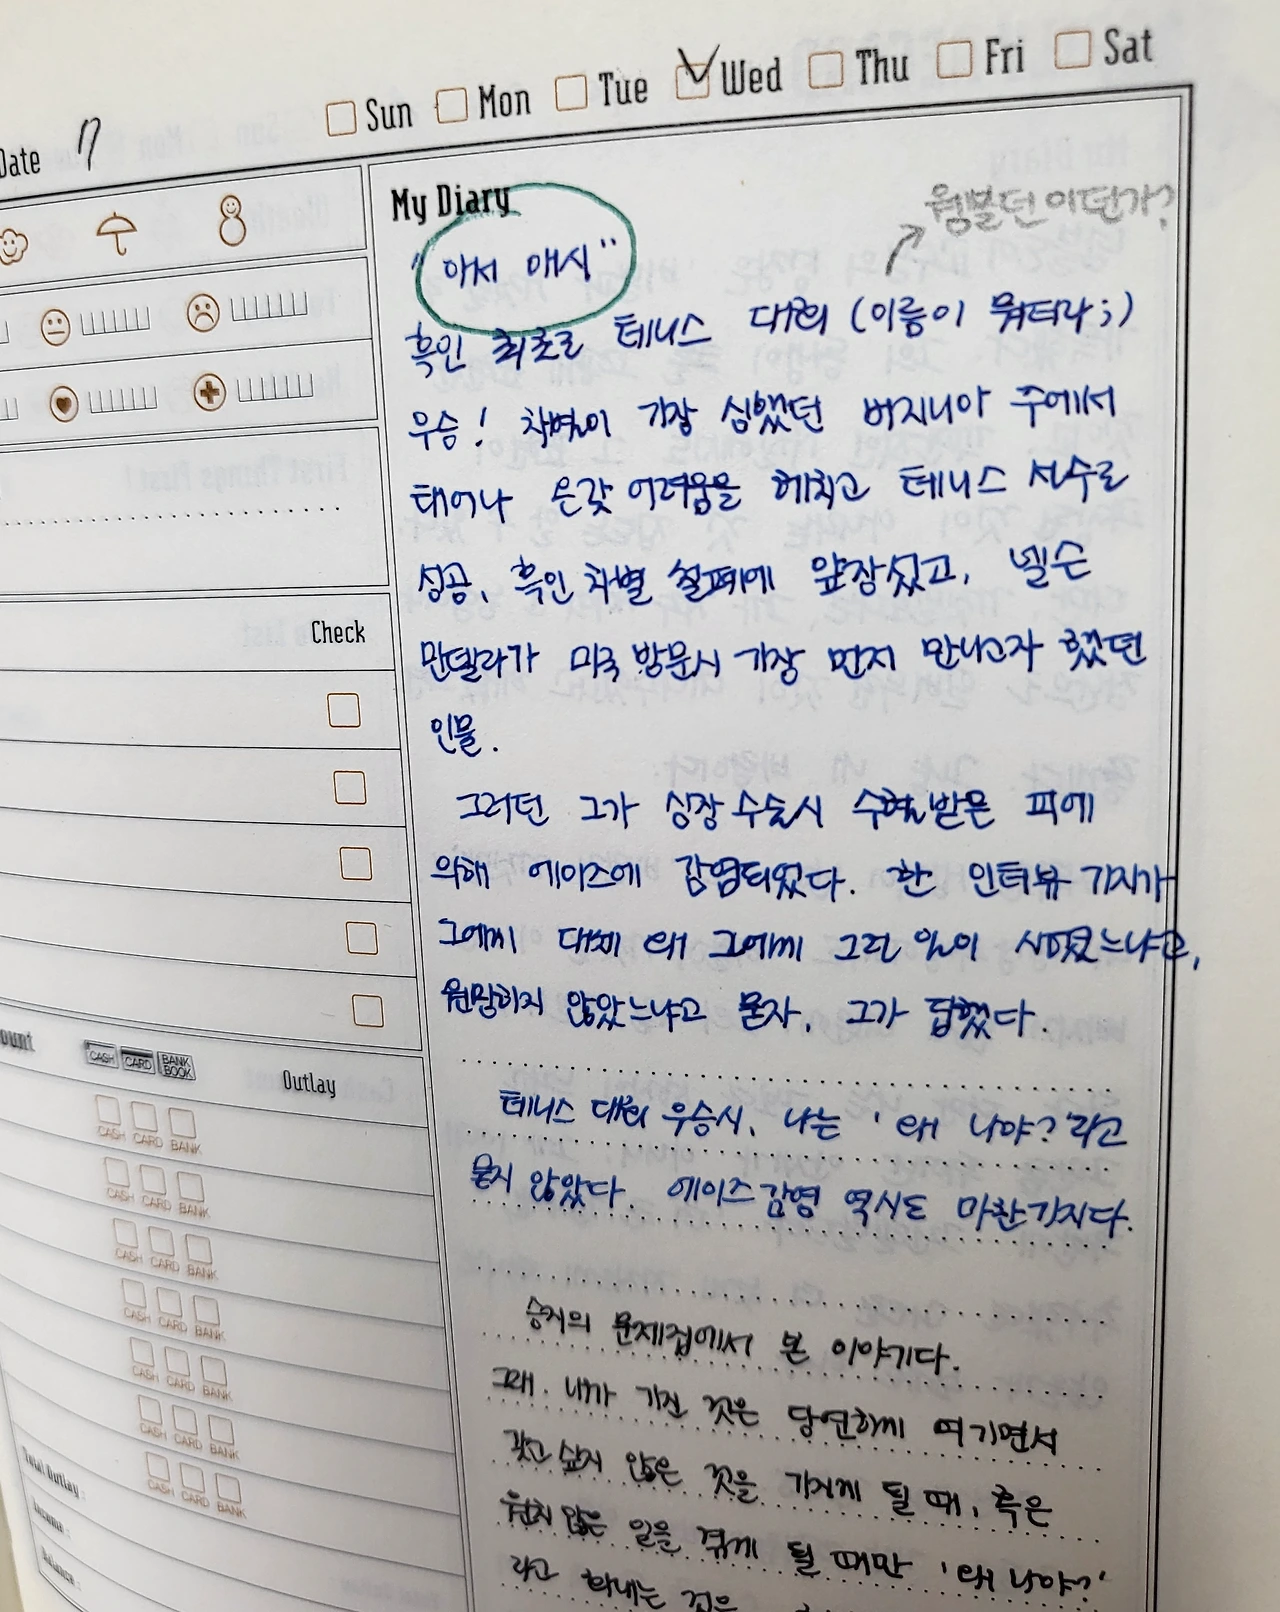 Date 17
Sun Mon Tue Wed Thu Fri Sat
My Diary
웜블던이던가?
"아서 애시"
흑인 최초로 테니스 대회 (이름이 뭐더라;)
우승! 차별이 가장 심했던 버지니아 주에서
태어나 온갖 어려움을 헤치고 테니스 선수로
성공, 흑인 차별 철폐에 앞장섰고, 넬슨
만델라가 미국 방문시 가장 먼저 만나고자 했던
인물.
그러던 그가 심장수술시 수혈받은 피에
의해 에이즈에 감염되었다. 한 인터뷰 기자가
그에게 대체 왜 그에게 그런 일이 생겼느냐고,
원망하지 않았느냐고 묻자, 그가 답했다.
테니스 대회 우승시, 나는 '왜 나야?'라고
묻지 않았다. 에이즈감염 역시도 마찬가지다.
승지의 문제집에서 본 이야기다.
그래. 내가 가진 것은 당연하게 여기면서
갖고 싶지 않은 것을 가지게 될 때, 혹은
원치 않은 일을 겪게 될 때만 '왜 나야?'
라고 화내는 것은
Check
Outlay
CASH CARD BANK BOOK
CASH CARD BANK
CASH CARD BANK
CASH CARD BANK
CASH CARD BANK
CASH CARD BANK
CASH CARD BANK
CASH CARD BANK
Total Outlay :
Income :
Balance :